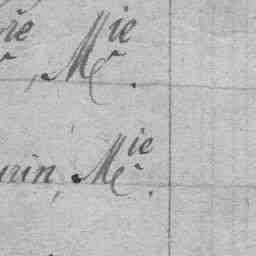 ie, Mie.
urin, Mie.